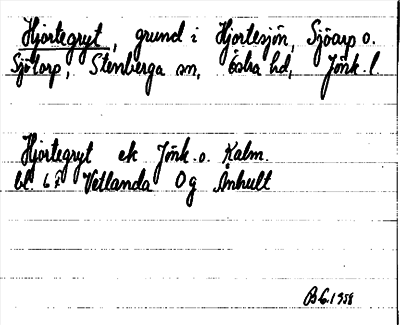 Hjortegryt, grund i Hjortesjön, Sjöarp o.
Sjötorp, Stenberga sn, östra hd, Jönk. l
Hjortegryt ek Jönk. o. Kalm.
bl. 67 Vetlanda Og Änhult
B.G. 1958